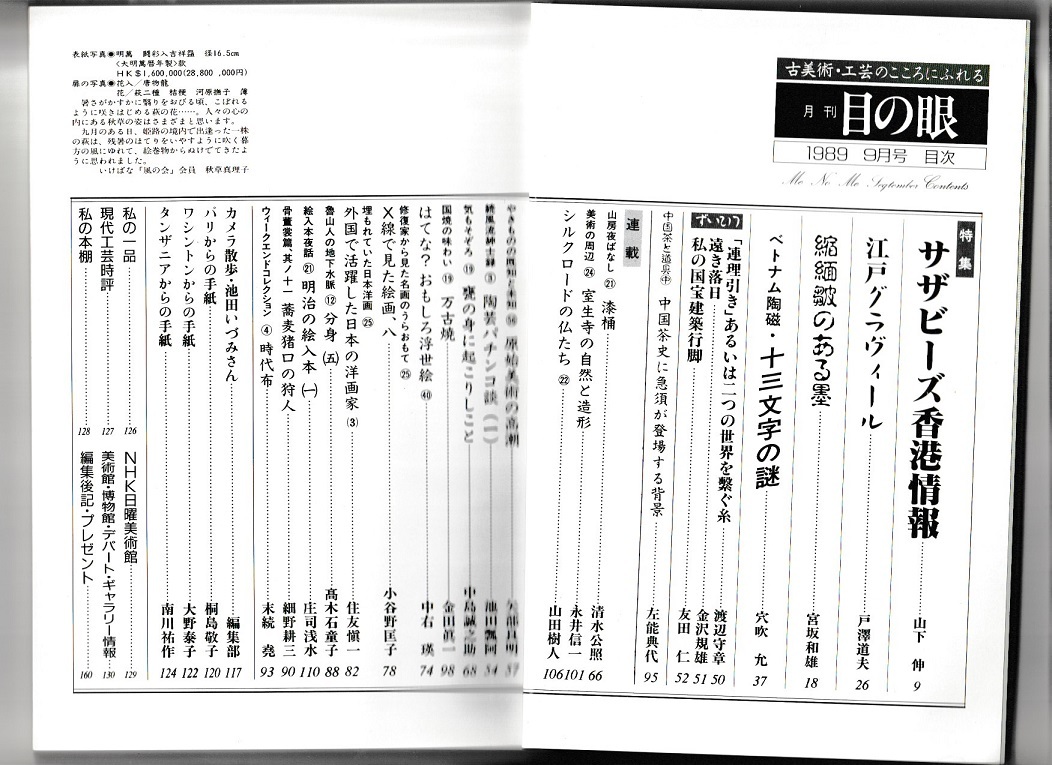 古美術・工芸のこころにふれる
月刊 目の眼
1989 9月号 目次
Me No Me September Contents
特集
サザビーズ香港情報 山下 伸 9
江戸グラヴィール 戸澤道夫 26
縮緬皺のある墨 宮坂和雄 18
ベトナム陶磁・十三文字の謎 穴吹 允 37
ずいひつ
「連理引き」あるいは二つの世界を繋ぐ糸 渡辺守章 50
遠き落日 金沢規雄 51
私の国宝建築行脚 友田 仁 52
中国茶と道具 中国茶史に急須が登場する背景 左能典代 95
連載
山房夜ばなし㉑ 漆桶 清水公照 66
美術の周辺㉔ 室生寺の自然と造形 永井信一 101
シルクロードの仏たち㉒ 山田樹人 106
やきものの既知と未知 原始美術の高潮 矢部良明 57
続風流紳士録③ 陶芸パチンコ談(一) 池田瓢阿 54
気もそぞろ⑲ 甕の身に起こりしこと 中島誠之助 68
国焼の味わい⑲ 万古焼 金田眞一 98
はてな?おもしろ浮世絵㊵ 中右 瑛 74
修復家から見た名画のうらおもて㉕
X線で見た絵画、八 小谷野匡子 78
埋もれていた日本洋画㉕
外国で活躍した日本の洋画家③ 住友愼一 82
魯山人の地下水脈⑫ 分身(五) 髙木石童子 88
絵入本夜話㉑ 明治の絵入本(一) 庄司浅水 110
骨董裳篇、其ノ十一 蕎麦猪口の狩人 細野耕三 90
ウィークエンドコレクション④ 時代布 末続 堯 93
カメラ散歩・池田いづみさん 編集部 117
パリからの手紙 桐島敬子 120
ワシントンからの手紙 大野泰子 122
タンザニアからの手紙 南川祐作 124
私の一品 126
NHK日曜美術館 129
現代工芸時評 127
美術館・博物館・デパート・ギャラリー情報 130
私の本棚 128
編集後記・プレゼント 160
表紙写真◉明萬 闘彩入吉祥 径16.5cm
〈大明萬暦年製〉款
HK$1,600,000(28,800,000円)
扉の写真◉花入/唐物籠
花/萩二種 桔梗 河原撫子 薄
暑さがかすかに翳りをおびる頃、こぼれる
ように咲きはじめる萩の花……。人々の心の
内にある秋草の姿はさまざまと思います。
九月のある日、姫路の境内で出逢った一株
の萩は、残暑のほてりをいやすように吹く暮
方の風にゆれて、絵巻物からぬけでてきたよ
うに思われました。
いけばな「風の会」会員 秋草真理子